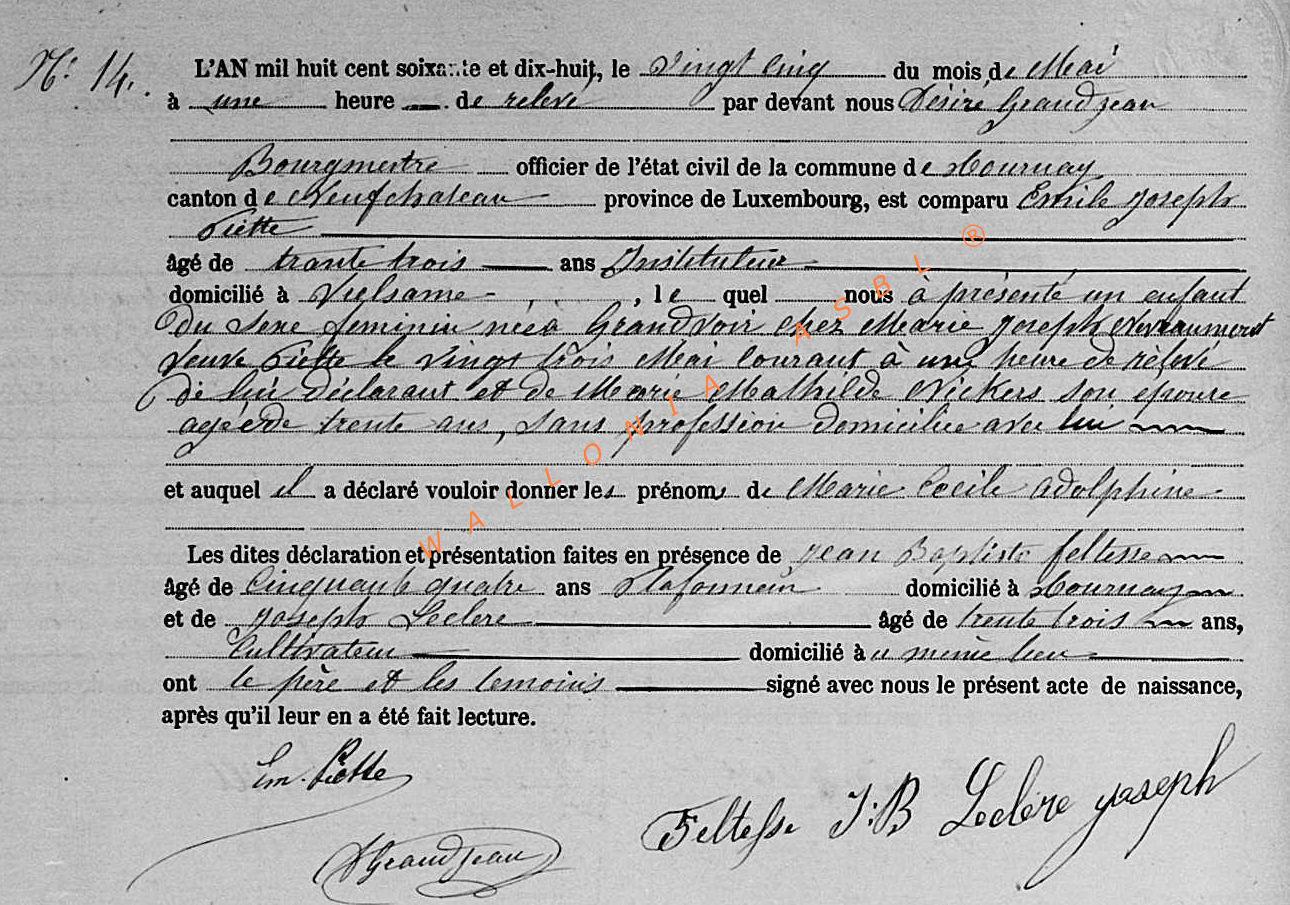 N° 14.
L'AN mil huit cent soixante et dix-huit, le vingt cinq du mois de Mai
à une heure de relevé par devant nous Désiré Grandjean
Bourgmestre officier de l'état civil de la commune de Tournay
canton de Neufchateau province de Luxembourg, est comparu Emile Joseph
Piette
âgé de trante trois ans Instituteur
domicilié à Vielsame, le quel nous à présenté un enfant
du sexe feminin née à Grandvoir chez Marie Joseph
veuve Piette le vingt trois Mai courant à une heure de rélevé
de lui déclarant et de Marie Mathilde Nickers son épouse
agée de trente ans, sans profession domiciliée avec lui
et auquel il a déclaré vouloir donner les prénoms de Marie Cécile Adolphine
Les dites déclaration et présentation faites en présence de Jean Baptiste Feltesse
âgé de cinquante quatre ans Plafonneur domicilié à Tournay
et de Joseph Leclere âgé de trente trois ans,
Cultivateur domicilié au même lieu
ont le père et les temoins signé avec nous le présent acte de naissance,
après qu'il leur en a été fait lecture.
Em. Piette
Feltesse J:B Leclère Joseph
DGrandjean
WALLONIA ASBL ®